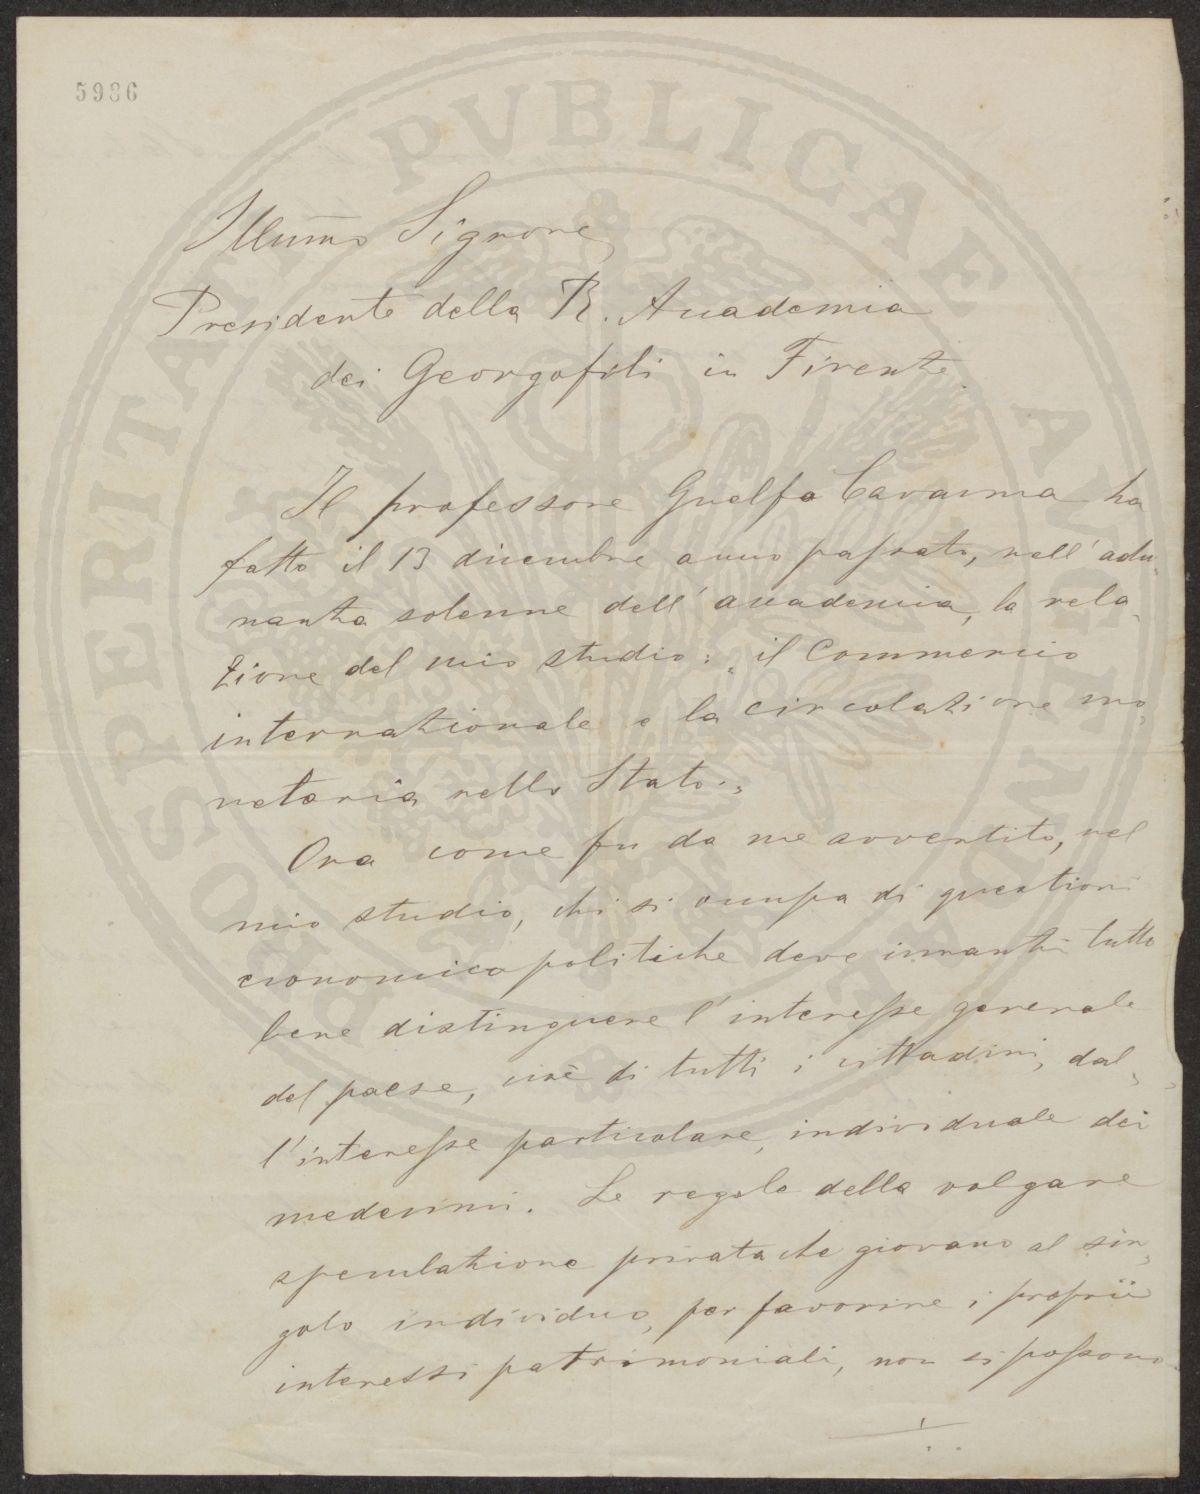 5986
PROSPERITATI PVBLICAE AVGENDAE
Illummo Signore
Presidente della R. Accademia
dei Georgofili in Firenze
Il professore Guelfo Cavanna ha
fatto il 13 dicembre anno passato, nell'adu„
nanza solenne dell'accademia, la rela„
zione del mio studio: „il Commercio
internazionale e la circolazione mo„
netaria nello Stato.„
Ora come fu da me avvertito, nel
mio studio, chi si occupa di questioni
economico politiche deve innanzi tutto
bene distinguere l'interesse generale
del paese, cioè di tutti i cittadini, dal„
l'interesse particolare, individuale dei
medesimi. Le regole della volgare
speculazione privata che giovano al sin„
golo individuo, per favorire i proprii
interessi patrimoniali, non si possono
./.